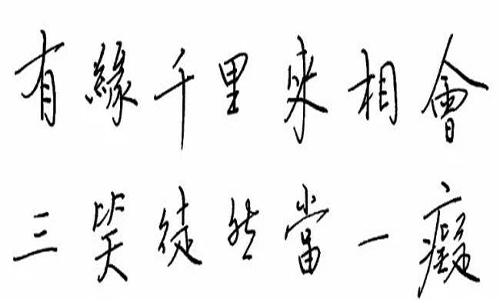 有緣千里來相會
三笑徒然當一癡